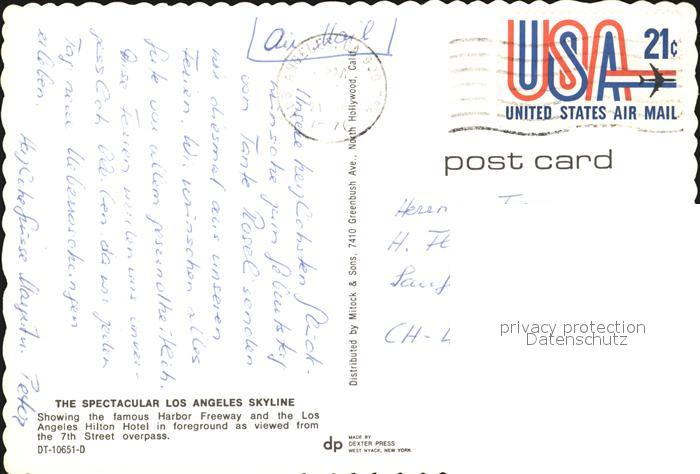 Air Mail
USA 21¢
UNITED STATES AIR MAIL
post card
Unsere herzlichsten Glück-
wünsche zum Geburtstag
von Tante Rosel senden
wir diesmal aus unseren
Ferien. Wir wünschen alles
Gute vor allem gesundheitlich.
Diese Ferien werden uns unver-
gesslich bleiben da wir jeden
Tag neue Ueberraschungen
erleben.
Herzliche Grüsse Margrit u. Peter
Herrn
H.
CH-
privacy protection
Datenschutz
Distributed by Mitock & Sons, 7410 Greenbush Ave., North Hollywood, Calif.
THE SPECTACULAR LOS ANGELES SKYLINE
Showing the famous Harbor Freeway and the Los
Angeles Hilton Hotel in foreground as viewed from
the 7th Street overpass.
DT-10651-D
dp MADE BY
DEXTER PRESS
WEST NYACK, NEW YORK